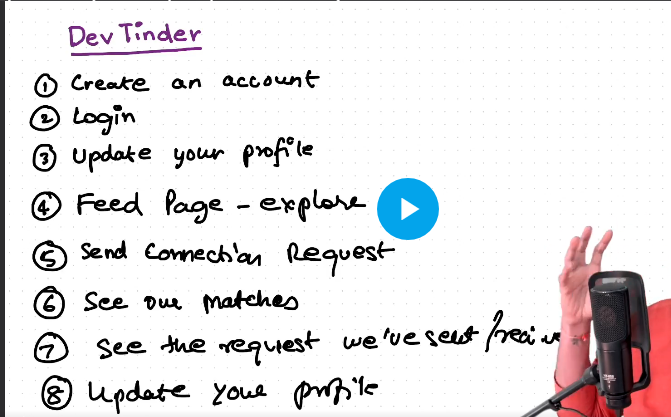 Dev Tinder
① Create an account
② Login
③ Update your profile
④ Feed Page - explore
⑤ Send Connection Request
⑥ See our matches
⑦ See the request we've sent /
⑧ Update your profile